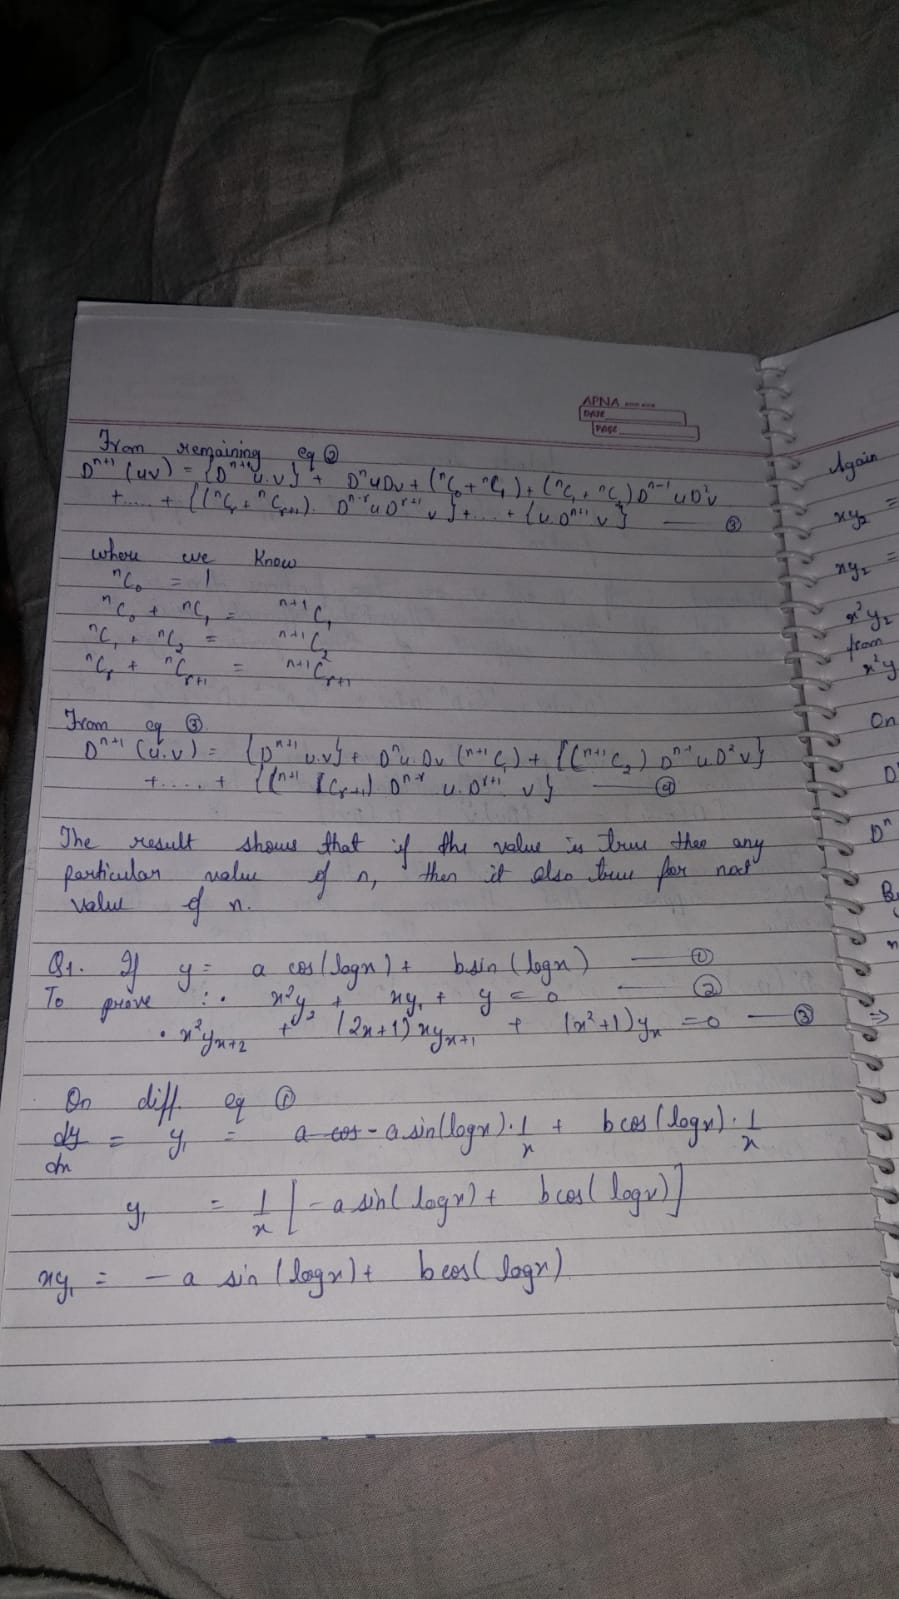 APNA
DATE
PAGE
From remaining eq ②
Dⁿ⁺¹ (uv) = {Dⁿ⁺¹u.v} + DⁿuDv + (ⁿC₀ + ⁿC₁) + (ⁿC₁ + ⁿC₂) Dⁿ⁻¹uD²v
+ ..... + {(ⁿCᵣ + ⁿCᵣ₊₁). Dⁿ⁻ʳuDʳ⁺¹v} + .... + {u.Dⁿ⁺¹v} — ③
where we know
ⁿC₀ = 1
ⁿC₀ + ⁿC₁ = ⁿ⁺¹C₁
ⁿC₁ + ⁿC₂ = ⁿ⁺¹C₂
ⁿCᵣ + ⁿCᵣ₊₁ = ⁿ⁺¹Cᵣ₊₁
From eq ③
Dⁿ⁺¹ (u.v) = {Dⁿ⁺¹u.v} + Dⁿu.Dv (ⁿ⁺¹C₁) + {(ⁿ⁺¹C₂) Dⁿ⁻¹u.D²v}
+ ..... + {(ⁿ⁺¹Cᵣ₊₁) Dⁿ⁻ʳ u.Dʳ⁺¹ v} — ④
The result shows that if the value is true then any
particular value of n, then it also true for next
value of n.
Q1. If y = a cos(logx) + b sin(logx) — ①
To prove :• x²y₂ + xy₁ + y = 0 — ②
• x²yₙ₊₂ + (2n+1)xyₙ₊₁ + (n²+1)yₙ = 0 — ③
On diff. eq ①
dy/dx = y₁ = a cos - a sin(logx).1/x + b cos(logx).1/x
y₁ = 1/x [-a sin(logx) + b cos(logx)]
xy₁ = - a sin(logx) + b cos(logx)
Again
xy₂ =
xy₂ =
x²y₂
from
x²y
On
D
Dⁿ
⇒